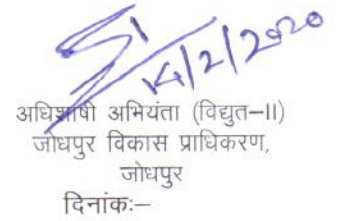 14/2/2020
अधिशाषी अभियंता (विद्युत–II)
जोधपुर विकास प्राधिकरण,
जोधपुर
दिनांकः–